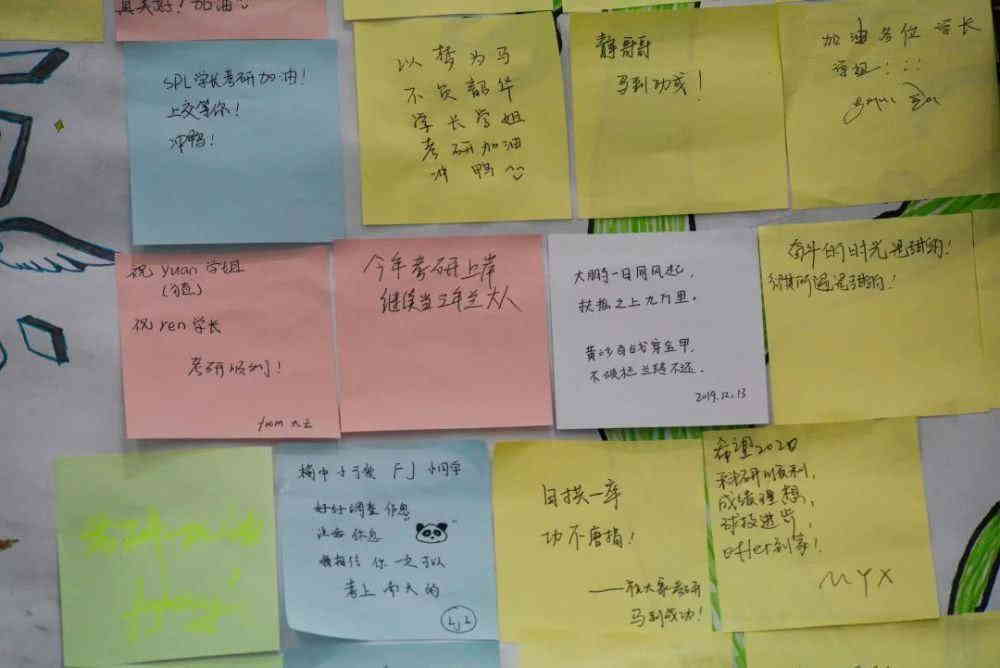 真美好！加油~
SPL学长考研加油！
上交等你！
冲鸭！
以梦为马
不负韶华
学长学姐
考研加油
冲鸭
静哥哥
马到功成！
加油各位学长
学姐：：：
祝yuan学姐
祝ren学长
考研顺利！
from
今年考研上岸
继续当三年兰大人
大鹏一日同风起，
扶摇之上九万里。
黄沙百战穿金甲，
不破楼兰终不还。
2019.12.13
奋斗的时光是甜的！
是甜的！
FJ 小同学
好好调整作息
注意休息
我相信你一定可以
考上南大的
LJL
日拱一卒
功不唐捐！
——祝大家考研
马到成功！
希望2020
科研顺利，
成绩理想，
球技进步，
offer到家！
MYX